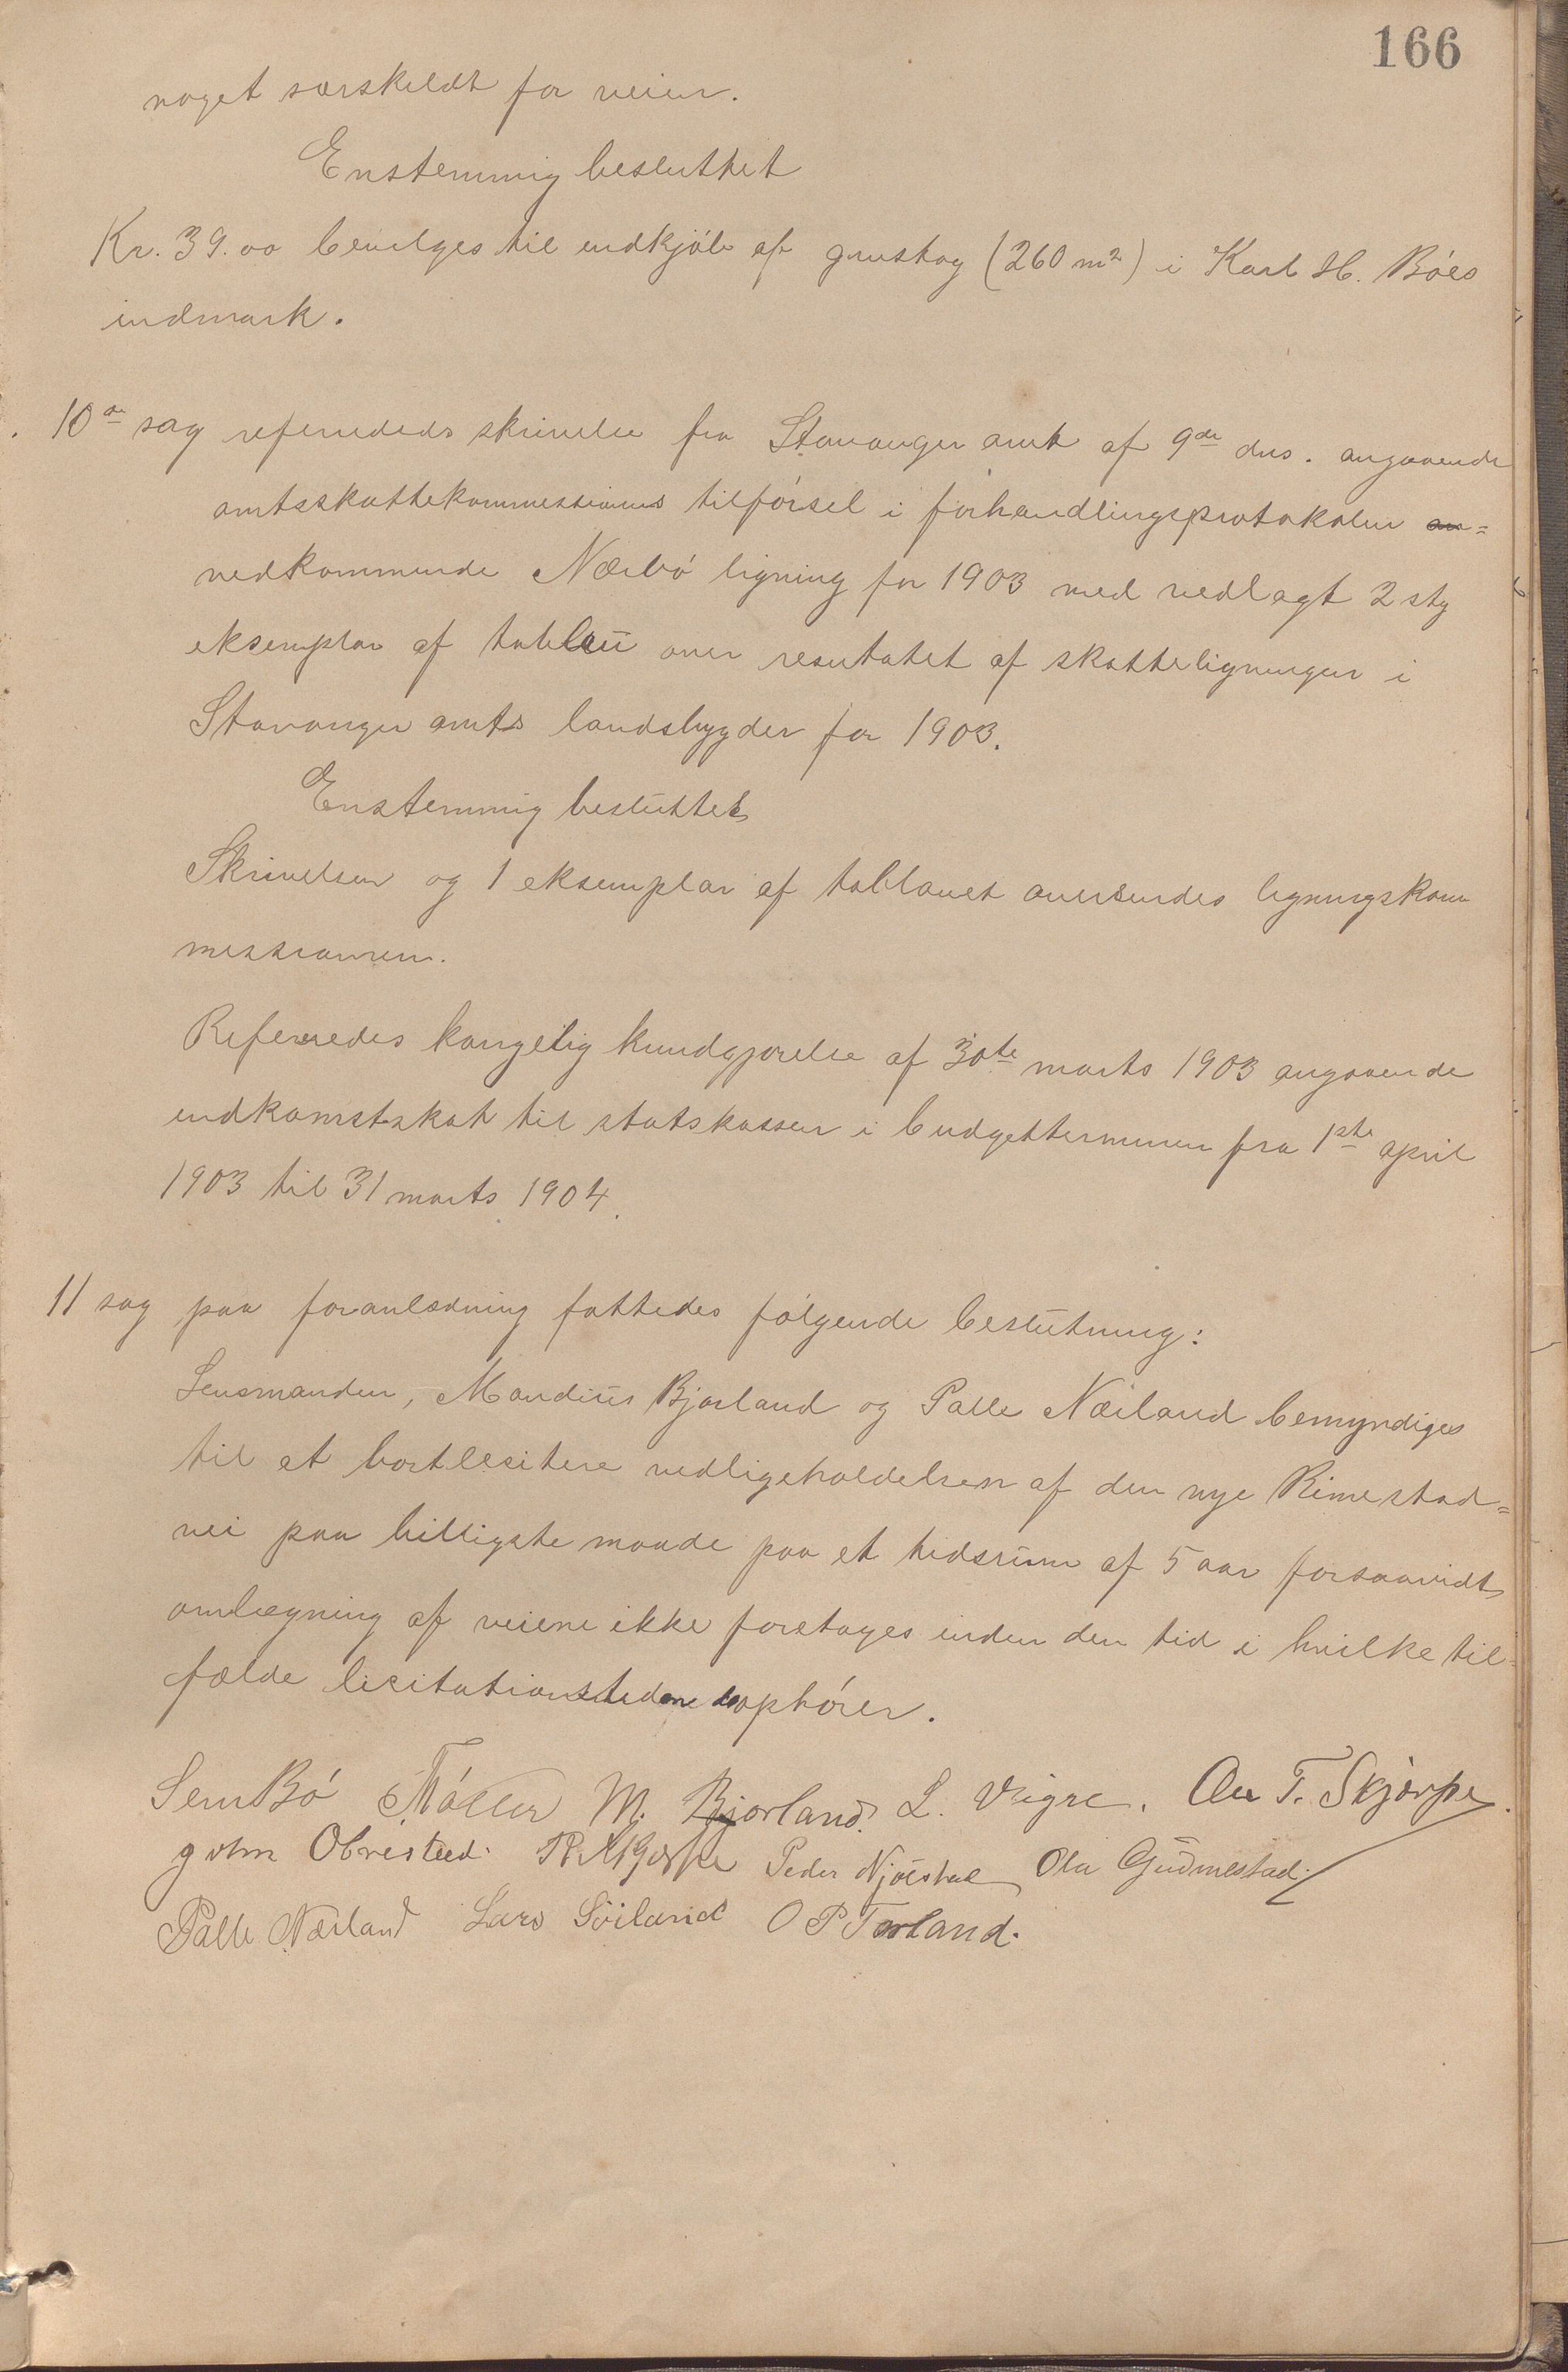 166
noget særskeldt for veien.
Enstemmig besluttet
Kr. 39.00 bevilges til indkjöb af grustag (260 m²) i Karl H. Böes
indmark.
10de sag refereredes skrivelse fra Stavanger amt af 9de dns. angaaende
amtsskattekommessionens tilførsel i forhandlingsprotokolen
vedkommende Nærbö ligning for 1903 med vedlagt 2 stg
eksemplar af tablau over resutatet af skatteligningen i
Stavanger amts landsbygder for 1903.
Enstemmig besluttet
Skrivelsen og 1 eksemplar af tablauet oversendes ligningskom
messionen.
Refereredes kongelig kundgjørelse af 30te marts 1903 angaaende
indkomstskat til statskassen i budgetterminen fra 1ste april
1903 til 31 marts 1904.
11 sag paa foranledning fattedes følgende beslutning:
Lensmanden, Maudius Bjorland og Palle Næiland bemyndiges
til et bortlesitere vedligeholdelsen af den nye Rimestad=
vei paa billigste maade paa et tidsrum af 5 aar forsaavidt
omlægning af veiene ikke foretages inden den tid i hvilke til=
fælde licitationstiden ophörer.
Sem Bö M. Bjorland. L. Vigre. Ole T. Skjærpe.
John Obrestad. R. Skjærpe Peder Njølstad Ola Gudmestad.
Palle Næiland Lars Söiland O P Torland.